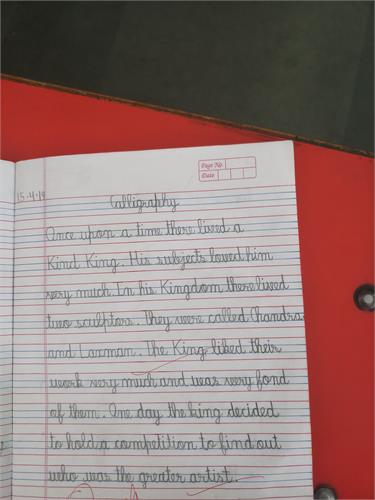 Page No.
Date
15.4.19
Calligraphy
Once upon a time there lived a
Kind King. His subjects loved him
very much. In his Kingdom there lived
two sculptors. They were called Chandra
and Laxman. The King liked their
work very much and was very fond
of them. One day the king decided
to hold a competition to find out
who was the greater artist.